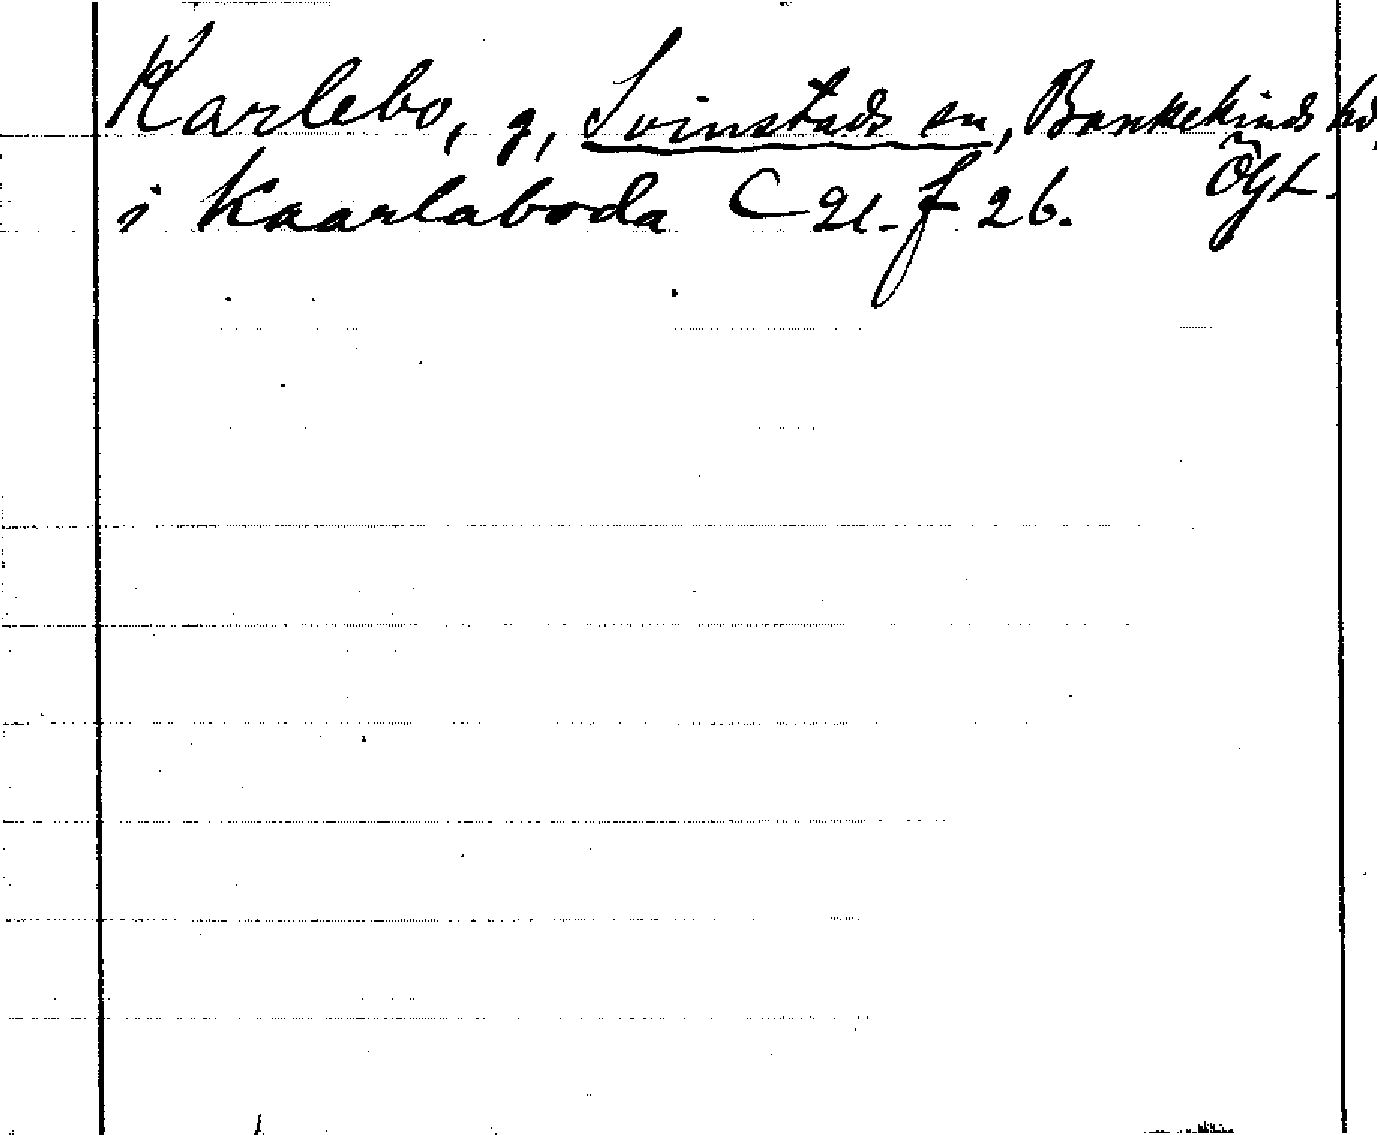 Karlebo, g, Svinstads sn, Bankekinds hd,
Ögt.
i Kaarlaboda C 21. f 26.